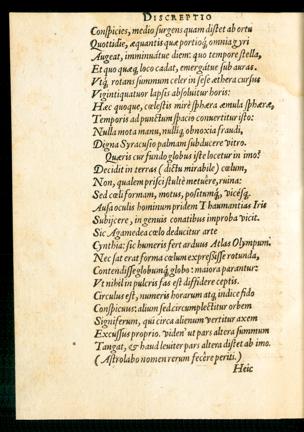 DISCREPTIO
Conspicies, medio surgens quam distet ab ortu
Quottidie, æquantis quæ portioq́; omnia gyri
Augeat, imminuatue diem: quo tempore stella,
Et quo quæq; loco cadat, emergátue sub auras.
Vtq́; rotans summum celer in sese æthera cursus
Vigintiquatuor lapsis absoluitur horis:
Hæc quoque, cœlestis mirè sphæra æmula sphæræ,
Temporis ad punctum spacio conuertitur isto:
Nulla mota manu, nulliq́; obnoxia fraudi,
Digna Syracusio palmam subducere vitro.
Quæris cur fundo globus iste locetur in imo?
Decidit in terras (dictu mirabile) cœlum,
Non, qualem prisci stultè metuêre, ruina:
Sed cœli formam, motus, positumq́;, vicésq́;
Ausa oculis hominum pridem Thaumantias Iris
Subijcere, in genuis conatibus improba vicit.
Sic Agamedea cœlo deducitur arte
Cynthia: sic humeris fert arduus Atlas Olympum.
Nec sat erat forma cœlum expressisse rotunda,
Contendisse globumq́; globo: maiora parantur:
Vt nihil in pulcris fas est diffidere ceptis.
Circulus est, numeris horarum atq; indice fido
Conspicuus: alium sed circumplectitur orbem
Signiferum, qui circa alienum vertitur axem
Excussus proprio. viden' ut pars altera summum
Tangat, & haud leuiter pars altera distet ab imo.
(Astrolabo nomen rerum fecêre periti.)
Heic